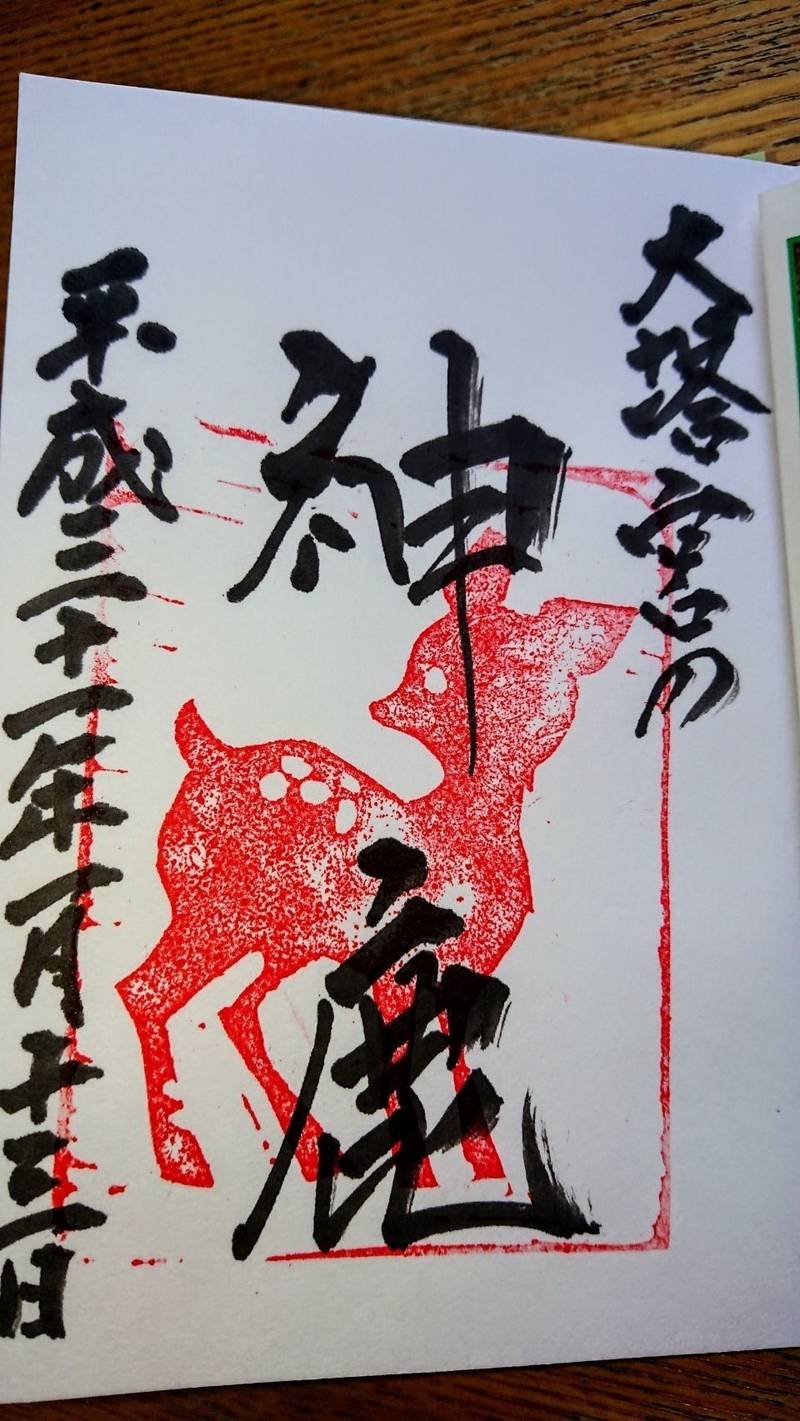 大塔宮の
神鹿
平成三十一年一月十三日